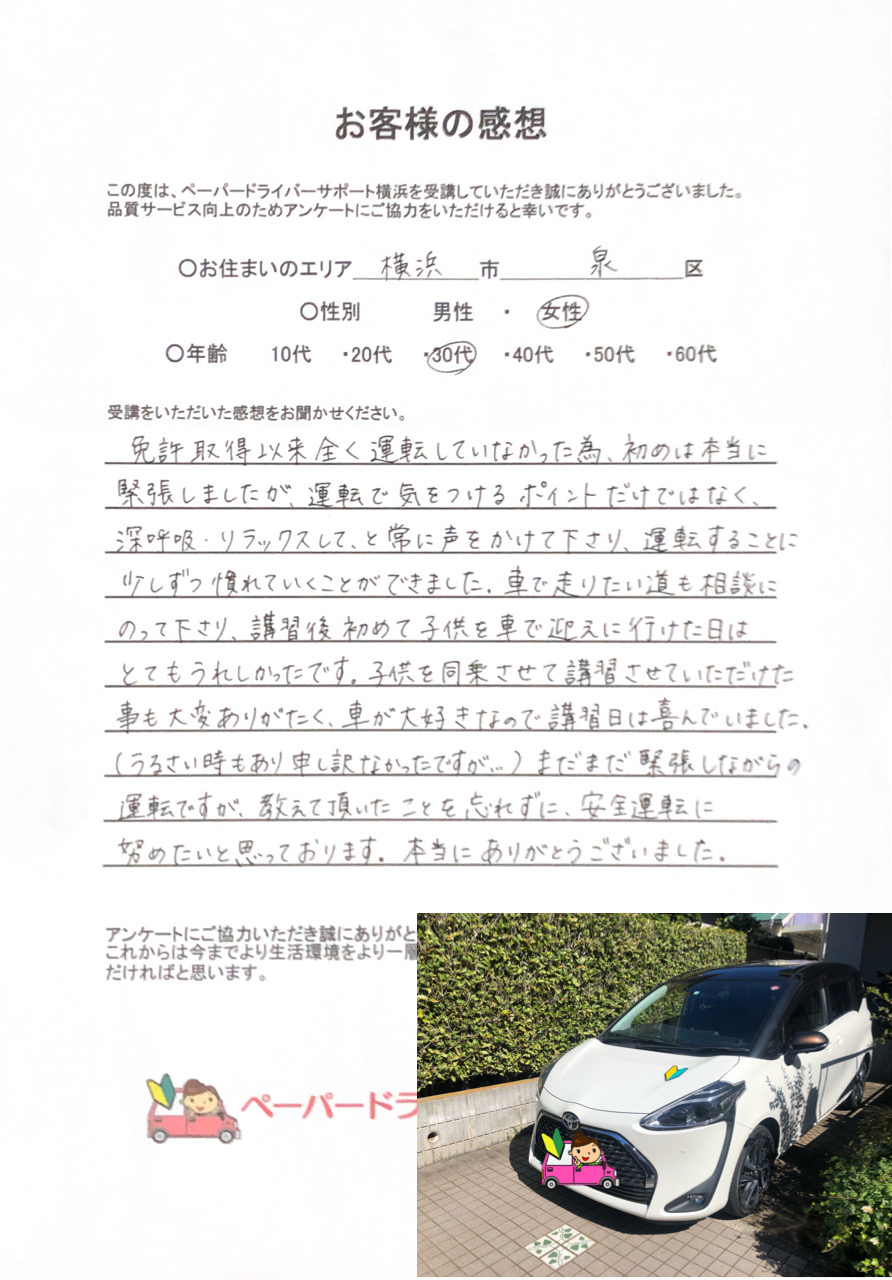 お客様の感想
この度は、ペーパードライバーサポート横浜を受講していただき誠にありがとうございました。
品質サービス向上のためアンケートにご協力をいただけると幸いです。
〇お住まいのエリア 横浜 市 泉 区
〇性別 男性 ・ 女性
〇年齢 10代 ・20代 ・30代 ・40代 ・50代 ・60代
受講をいただいた感想をお聞かせください。
免許取得以来全く運転していなかった為、初めは本当に
緊張しましたが、運転で気をつけるポイントだけではなく、
深呼吸・リラックスして、と常に声をかけて下さり、運転することに
少しずつ慣れていくことができました。車で走りたい道も相談に
のって下さり、講習後初めて子供を車で迎えに行けた日は
とてもうれしかったです。子供を同乗させて講習させていただけた
事も大変ありがたく、車が大好きなので講習日は喜んでいました。
(うるさい時もあり申し訳なかったですが…)まだまだ緊張しながらの
運転ですが、教えて頂いたことを忘れずに、安全運転に
努めたいと思っております。本当にありがとうございました。
アンケートにご協力いただき誠にありがと
これからは今までより生活環境をより一層
だければと思います。
ペーパードラ